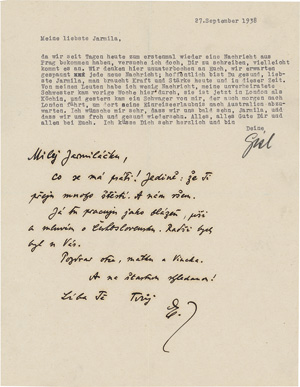 27.September 1938
Meine liebste Jarmila,
da wir seit Tagen heute zum erstenmal wieder eine Nachricht aus
Prag bekommen haben, versuche ich doch, Dir zu schreiben, vielleicht
kommt es an. Wir denken hier ununterbrochen an Euch, wir erwarten
gespannt jede neue Nachricht; hoffentlich bist Du gesund, lieb-
ste Jarmila, man braucht Kraft und Stärke heute und in dieser Zeit.
Von meinen Leuten habe ich wenig Nachricht, meine
Schwester kam vorige Woche hierher durch, sie ist jetzt in London als
Köchin, und gestern kam ein Schwager von mir, der auch von morgen nach
London fährt, um dort seine Einreiseerlaubnis nach Australien abzu-
warten. Ich wünsche mir, dass wir uns bald sehn, Jarmila, und
dass wir uns froh und gesund wiedersehn. Alles, alles Gute Dir und
allen bei Euch. Ich küsse Dich sehr herzlich und bin
Deine
Gisl
Milej Jarmiláčku,
Co se má psáti! Jedině: že Ti
přeju mnoho štěstí. A nám všem.
Já tu pracuju jako blázen, píši
a mluvím o Československu. Radši bych
byl u Vás.
Pozdrav otce, matku a Vincka.
A na šťastnou shledanou!
Líbá Tě Tvůj
E.